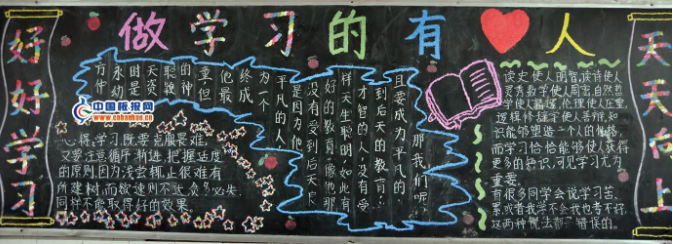 做学习的有人
好好学习
方仲
永幼
时是
天资
聪颖
的神
童但
他最
终成
为一个
平凡的人
是因为他
没有受到后天
好的教育，像他那
样天生聪明，如此有
才智的人，没有受
到后天的教育，
且要成为平凡的，
那我们呢
中国板报网
www.cnbanbao.cn
心得，学习，既要克服畏难，
又要注意循序渐进，把握适度
的原则，因为浅尝辄止，很难有
所建树，而欲速则不达，贪多必失，
同样不能取得好的效果
读史使人明智，读诗使人
灵秀，数学使人周密，自然哲
学使人精邃，伦理使人庄重，
逻辑修辞学使人善辩，知
识能够塑造一个人的性格，
而学习恰恰能够使人获得
更多的知识，可见学习尤为
重要。
有很多同学会说学习苦，
累，或者我学不会我也考不好，
这两种说法都是错误的。
天天向上